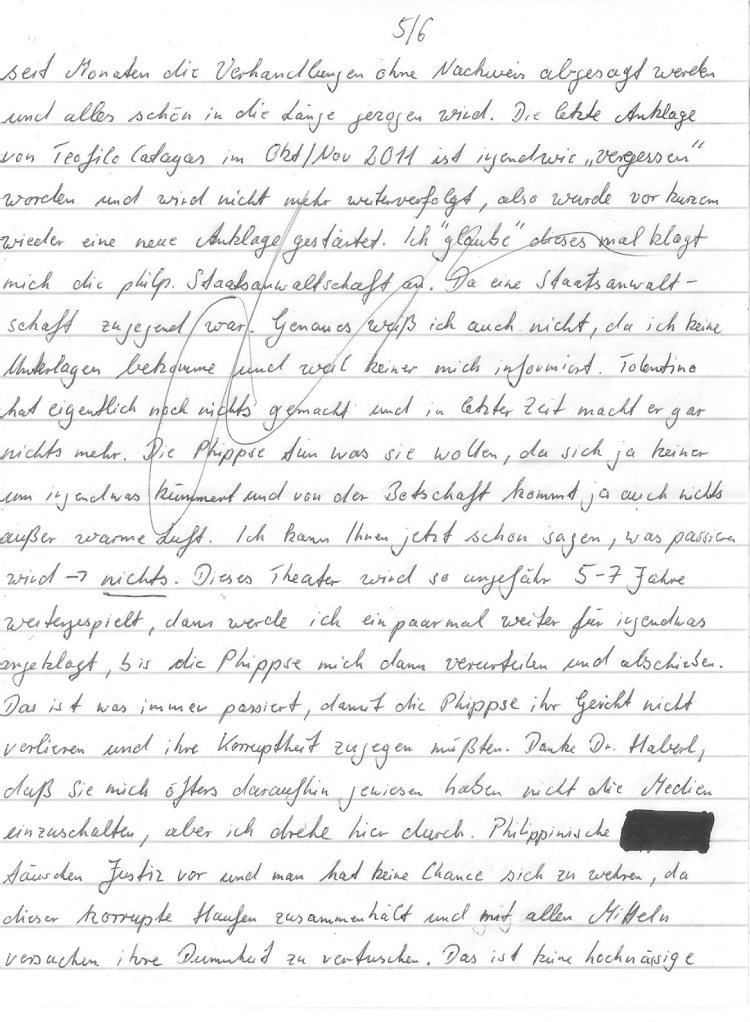 5/6
seit Monaten die Verhandlungen ohne Nachweis abgesagt werden
und alles schön in die Länge gezogen wird. Die letzte Anklage
von Teofilo Catagas im Okt/Nov 2011 ist irgendwie „vergessen“
worden und wird nicht mehr weiterverfolgt, also wurde vor kurzem
wieder eine neue Anklage gestartet. Ich "glaube" dieses mal klagt
mich die philp. Staatsanwaltschaft an. Da eine Staatsanwalt-
schaft zugegend war. Genaues weiß ich auch nicht, da ich keine
Unterlagen bekomme und weil keiner mich informiert. Tolentino
hat eigentlich noch nichts gemacht und in letzter Zeit macht er gar
nichts mehr. Die Phippse tun was sie wollen, da sich ja keiner
um irgendwas kümmert und von der Botschaft kommt ja auch nichts
außer warme Luft. Ich kann Ihnen jetzt schon sagen, was passieren
wird → nichts. Dieses Theater wird so ungefähr 5-7 Jahre
weitergespielt, dann werde ich ein paarmal weiter für irgendwas
angeklagt, bis die Phippse mich dann verurteilen und abschieben.
Das ist was immer passiert, damit die Phippse ihr Gesicht nicht
verlieren und ihre Korruptheit zugegen müßten. Danke Dr. Haberl,
daß Sie mich öfters daraufhin gewiesen haben nicht die Medien
einzuschalten, aber ich drehe hier durch. Philippinische
täuschen Justiz vor und man hat keine Chance sich zu wehren, da
dieser korrupte Haufen zusammenhält und mit allen Mitteln
versuchen ihre Dummheit zu vertuschen. Das ist keine hochnässige